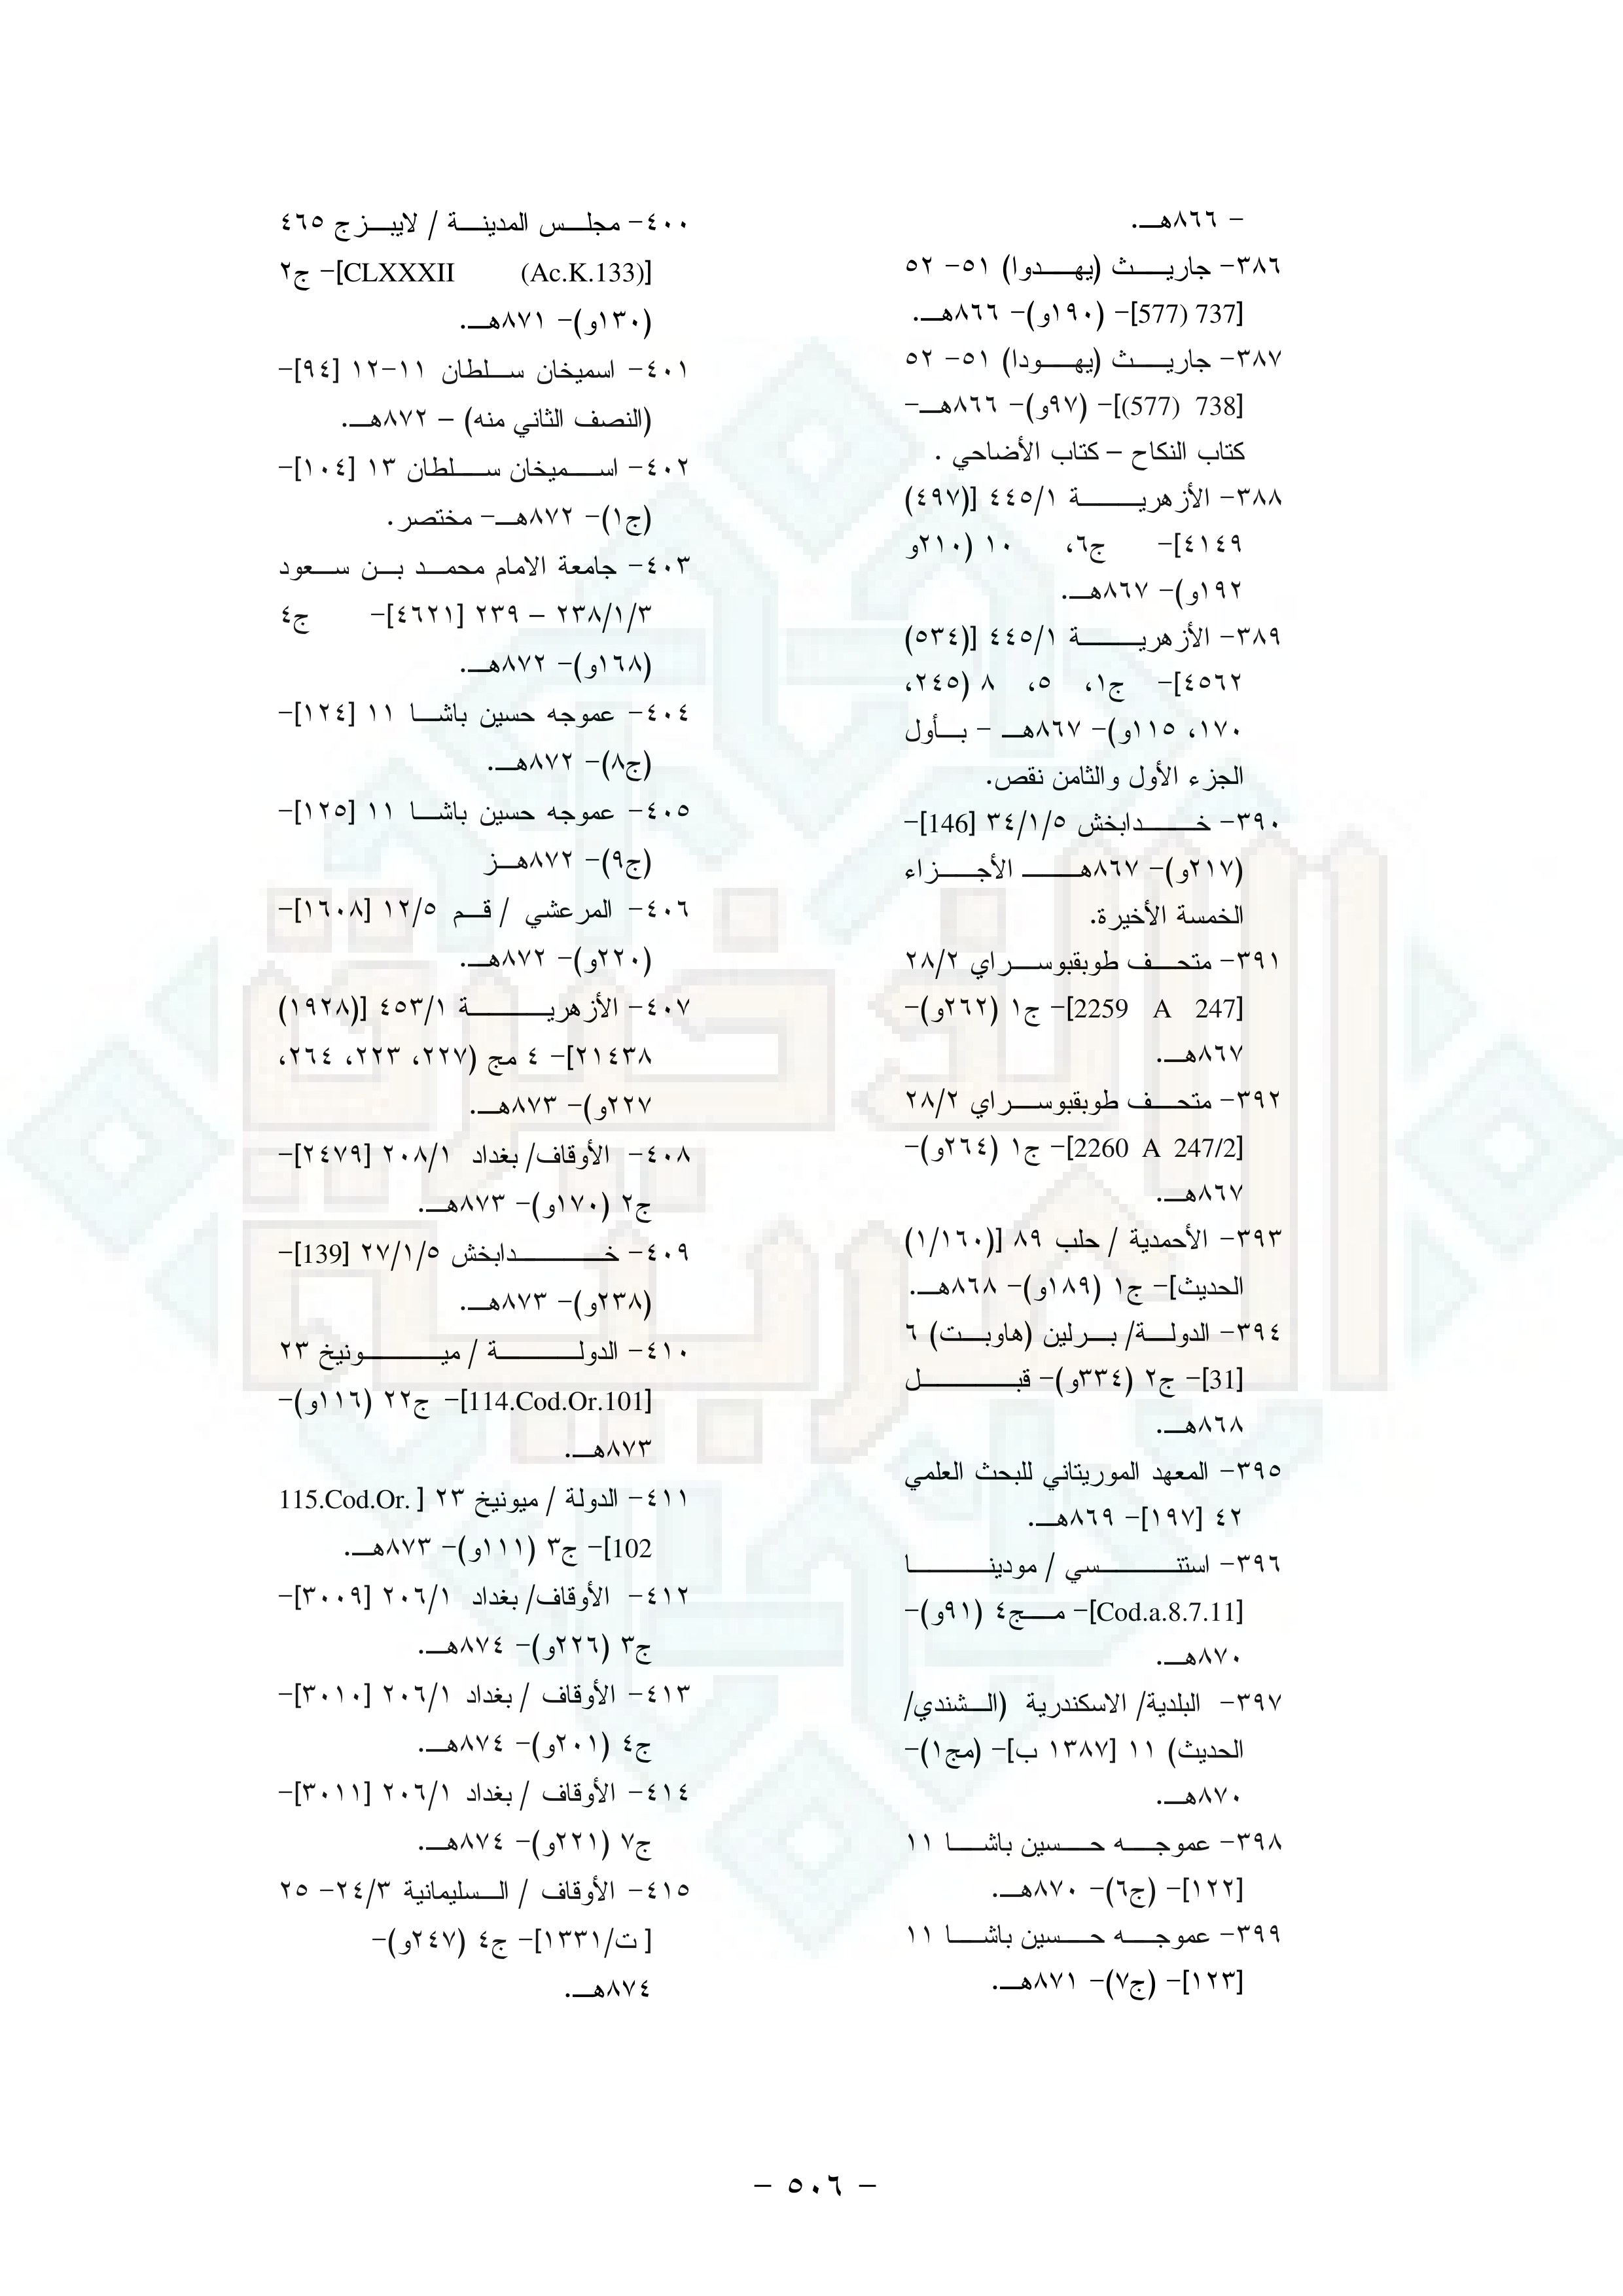 - ٨٦٦هـ.
٣٨٦- جاريث (يهدوا) ٥١- ٥٢
[737 (577]- (١٩٠و)- ٨٦٦هـ.
٣٨٧- جاريث (يهودا) ٥١- ٥٢
[738 (577)]- (٩٧و)- ٨٦٦هـ-
كتاب النكاح – كتاب الأضاحي .
٣٨٨- الأزهرية ٤٤٥/١ [(٤٩٧)
٤١٤٩]- ج٦، ١٠ (٢١٠و
١٩٢و)- ٨٦٧هـ.
٣٨٩- الأزهرية ٤٤٥/١ [(٥٣٤)
٤٥٦٢]- ج١، ٥، ٨ (٢٤٥،
١٧٠، ١١٥و)- ٨٦٧هـ - بأول
الجزء الأول والثامن نقص.
٣٩٠- خدابخش ٣٤/١/٥ [146]-
(٢١٧و)- ٨٦٧هـ الأجزاء
الخمسة الأخيرة.
٣٩١- متحف طوبقبوسراي ٢٨/٢
[2259 A 247]- ج١ (٢٦٢و)-
٨٦٧هـ.
٣٩٢- متحف طوبقبوسراي ٢٨/٢
[2260 A 247/2]- ج١ (٢٦٤و)-
٨٦٧هـ.
٣٩٣- الأحمدية / حلب ٨٩ [(١/١٦٠)
الحديث]- ج١ (١٨٩و)- ٨٦٨هـ.
٣٩٤- الدولة/ برلين (هاوبت) ٦
[31]- ج٢ (٣٣٤و)- قبل
٨٦٨هـ.
٣٩٥- المعهد الموريتاني للبحث العلمي
٤٢ [١٩٧]- ٨٦٩هـ.
٣٩٦- استتسي / مودينا
[Cod.a.8.7.11]- مج٤ (٩١و)-
٨٧٠هـ.
٣٩٧- البلدية/ الاسكندرية (الشندي/
الحديث) ١١ [١٣٨٧ ب]- (مج١)-
٨٧٠هـ.
٣٩٨- عموجه حسين باشا ١١
[١٢٢]- (ج٦)- ٨٧٠هـ.
٣٩٩- عموجه حسين باشا ١١
[١٢٣]- (ج٧)- ٨٧١هـ.
٤٠٠- مجلس المدينة / لايبزج ٤٦٥
[CLXXXII (Ac.K.133)]- ج٢
(١٣٠و)- ٨٧١هـ.
٤٠١- اسميخان سلطان ١١-١٢ [٩٤]-
(النصف الثاني منه) – ٨٧٢هـ.
٤٠٢- اسميخان سلطان ١٣ [١٠٤]-
(ج١)- ٨٧٢هـ- مختصر.
٤٠٣- جامعة الامام محمد بن سعود
٢٣٨/١/٣ – ٢٣٩ [٤٦٢١]- ج٤
(١٦٨و)- ٨٧٢هـ.
٤٠٤- عموجه حسين باشا ١١ [١٢٤]-
(ج٨)- ٨٧٢هـ.
٤٠٥- عموجه حسين باشا ١١ [١٢٥]-
(ج٩)- ٨٧٢هـز
٤٠٦- المرعشي / قم ١٢/٥ [١٦٠٨]-
(٢٢٠و)- ٨٧٢هـ.
٤٠٧- الأزهرية ٤٥٣/١ [(١٩٢٨)
٢١٤٣٨]- ٤ مج (٢٢٧، ٢٢٣، ٢٦٤،
٢٢٧و)- ٨٧٣هـ.
٤٠٨- الأوقاف/ بغداد ٢٠٨/١ [٢٤٧٩]-
ج٢ (١٧٠و)- ٨٧٣هـ.
٤٠٩- خدابخش ٢٧/١/٥ [139]-
(٢٣٨و)- ٨٧٣هـ.
٤١٠- الدولة / ميونيخ ٢٣
[114.Cod.Or.101]- ج٢٢ (١١٦و)-
٨٧٣هـ.
٤١١- الدولة / ميونيخ ٢٣ [ 115.Cod.Or.
102]- ج٣ (١١١و)- ٨٧٣هـ.
٤١٢- الأوقاف/ بغداد ٢٠٦/١ [٣٠٠٩]-
ج٣ (٢٢٦و)- ٨٧٤هـ.
٤١٣- الأوقاف / بغداد ٢٠٦/١ [٣٠١٠]-
ج٤ (٢٠١و)- ٨٧٤هـ.
٤١٤- الأوقاف / بغداد ٢٠٦/١ [٣٠١١]-
ج٧ (٢٢١و)- ٨٧٤هـ.
٤١٥- الأوقاف / السليمانية ٢٤/٣- ٢٥
[ ت/١٣٣١]- ج٤ (٢٤٧و)-
٨٧٤هـ.
- ٥٠٦ -